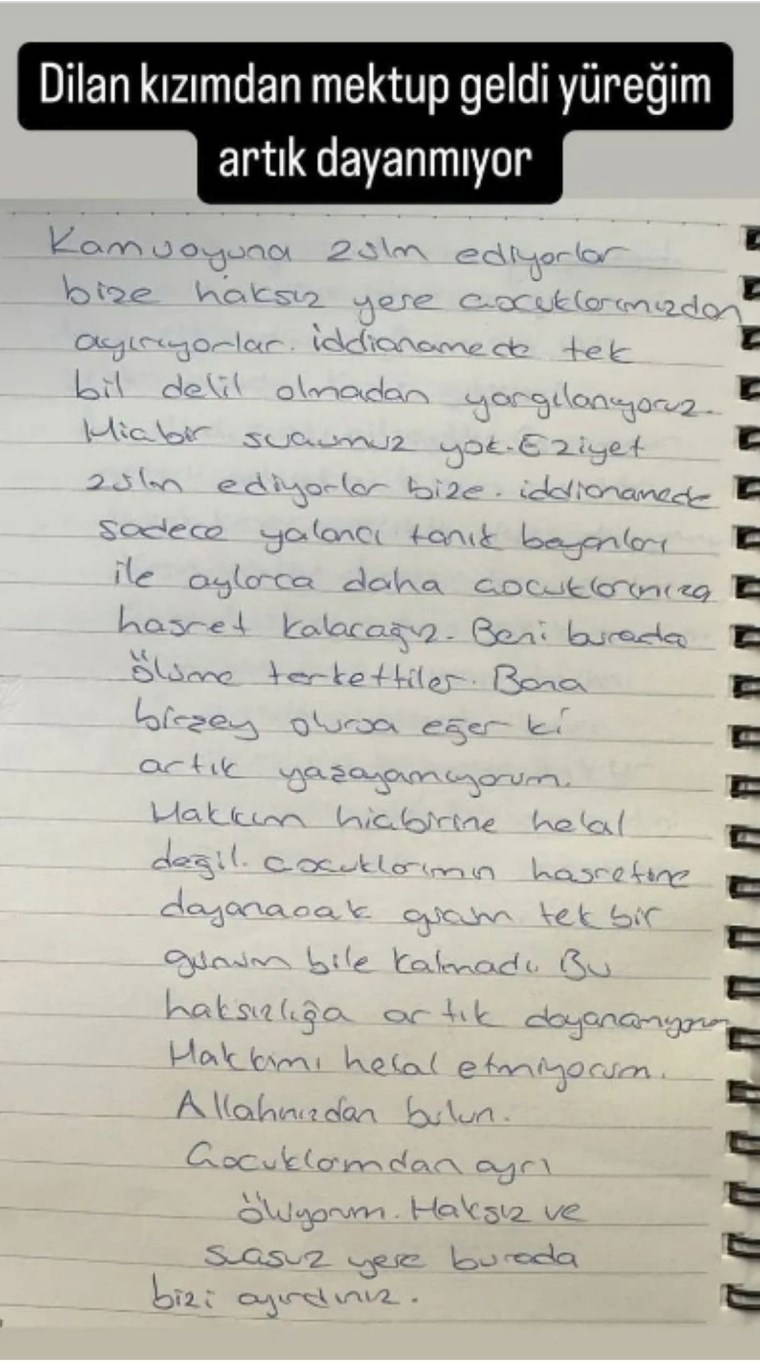 Dilan kızımdan mektup geldi yüreğim
artık dayanmıyor
Kamuoyuna zulm ediyorlar
bize haksız yere çocuklarımızdan
ayırıyorlar. iddianamede tek
bil delil olmadan yargılanıyoruz.
Hiçbir suçumuz yok. Eziyet
zulm ediyorlar bize. iddianamede
sadece yalancı tanık beyanları
ile aylarca daha çocuklarımıza
hasret kalacağız. Beni burada
ölüme terkettiler. Bana
birşey olursa eğer ki
artık yaşayamıyorum.
Hakkım hiçbirine helal
değil. Çocuklarımın hasretine
dayanacak gücüm tek bir
günüm bile kalmadı. Bu
haksızlığa artık dayanamıyorum
Hakkımı helal etmiyorum.
Allahınızdan bulun.
Çocuklarımdan ayrı
ölüyorum. Haksız ve
suçsuz yere burada
bizi ayırdınız.